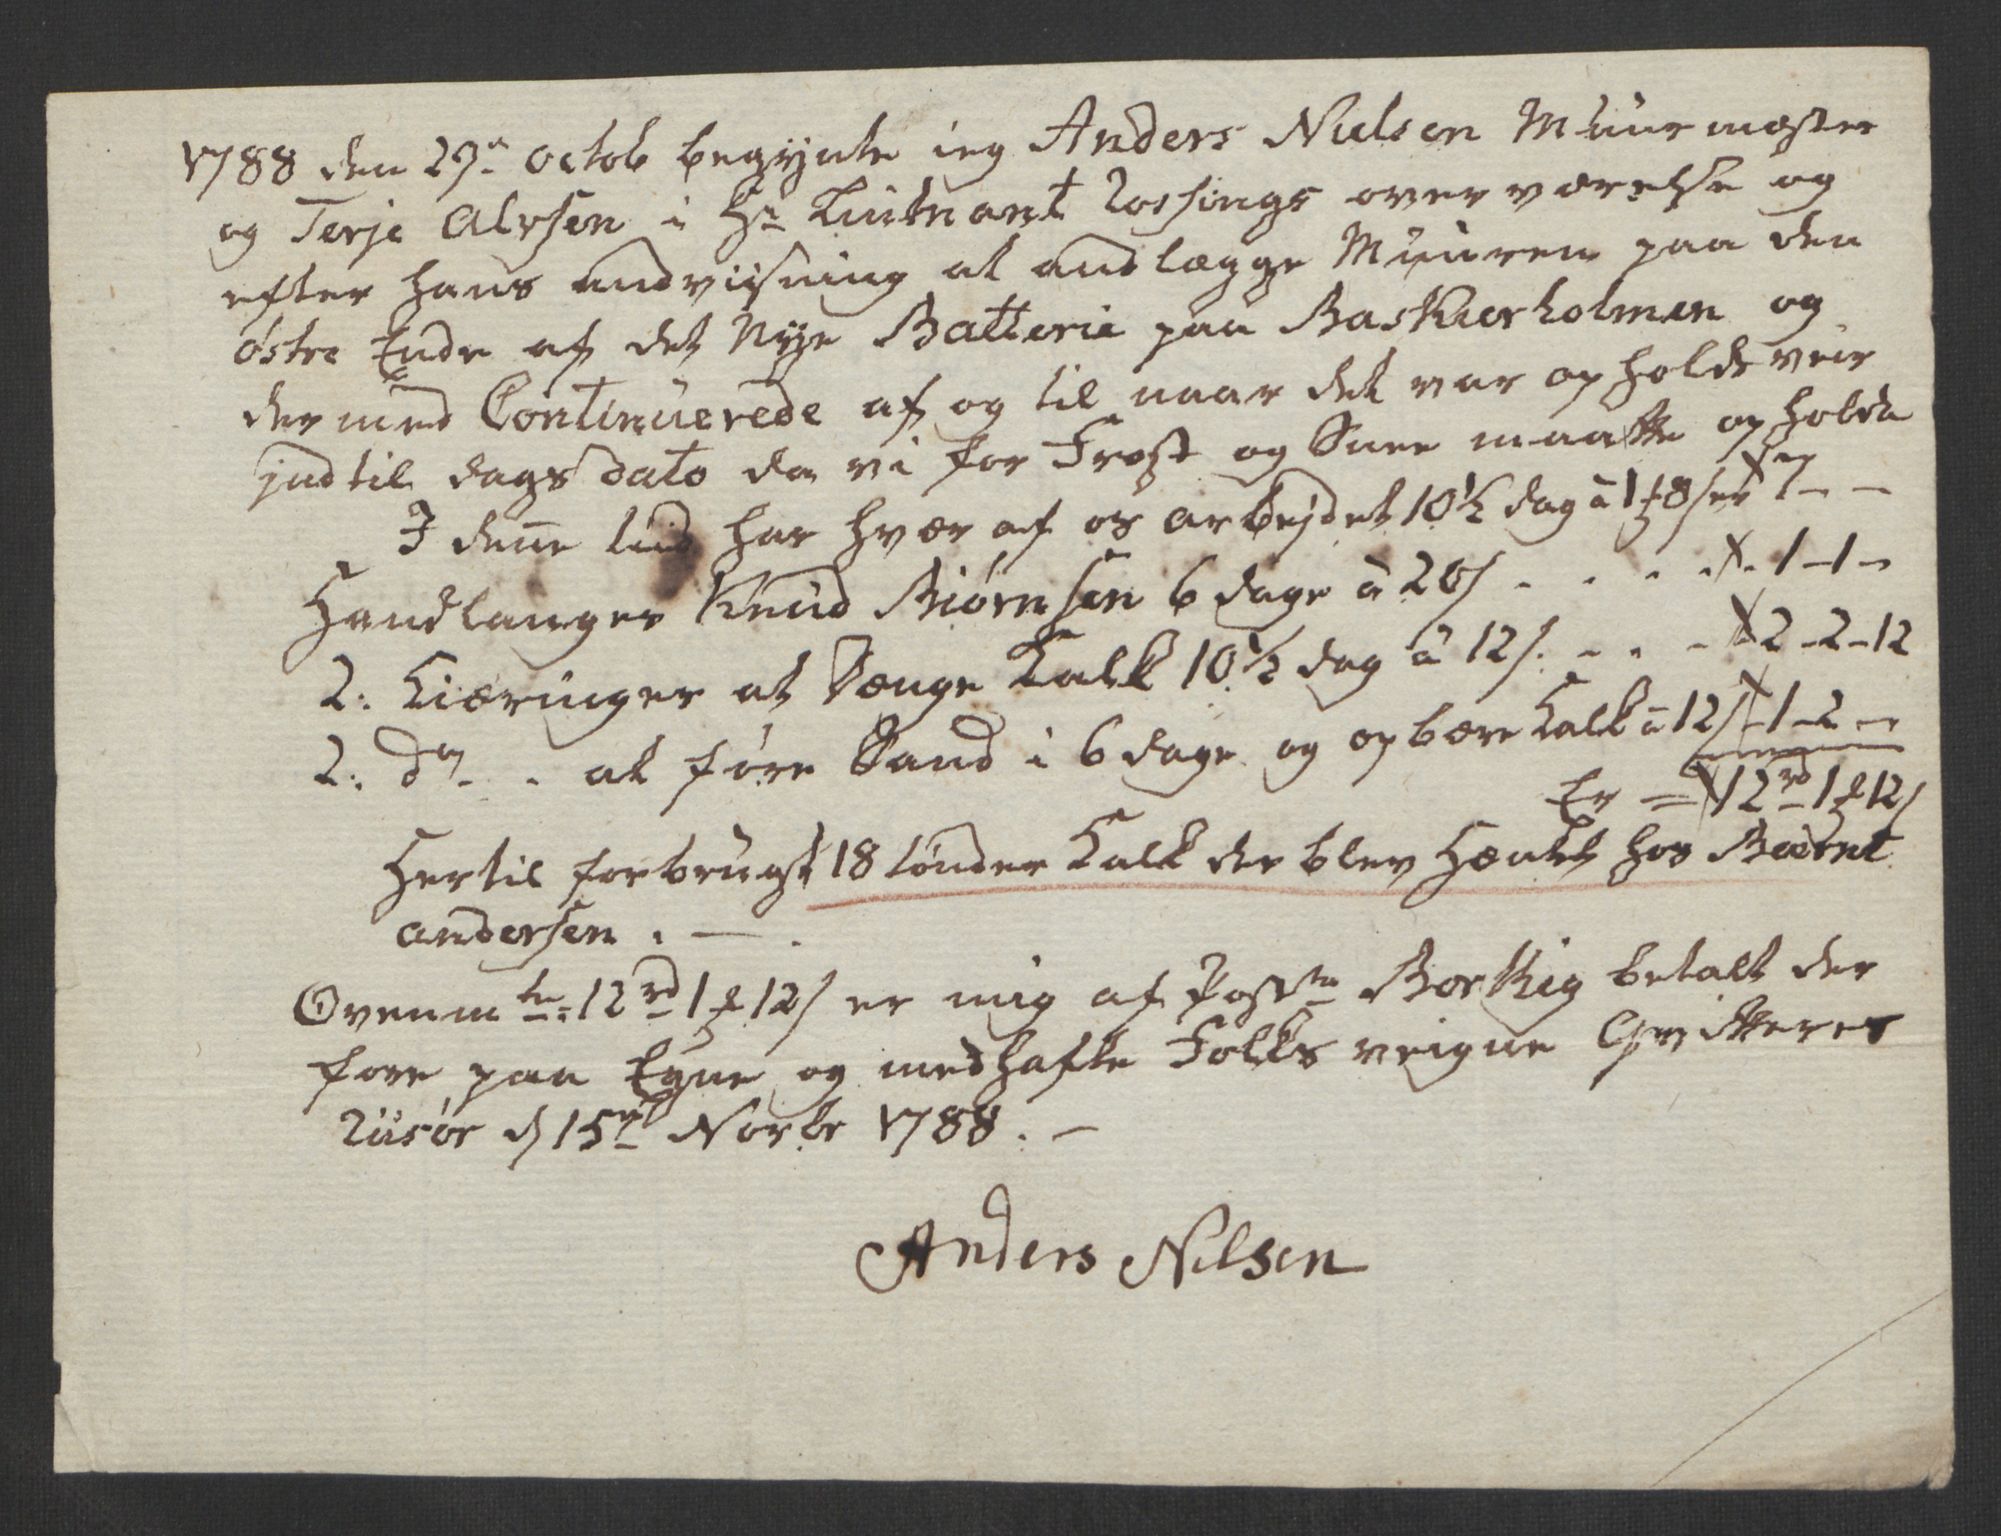 1788 den 29de octob begyntte ieg Anders Nielsen Muurmester
og Terje Alvsen i Hr Luitnant Rossings overværelse og
efter hans andviisning at andlægge Muuren paa den
østre Ende af det Nÿe Batterie paa Baskierholmen og
dermed Continuerede af og til naar det var opholds veir
jndtil dags dato da vi for Frost og Snee maatte opholde
I denne tiid har hver af os arbejdet 10½ dag à 1 ƶ 8 s er X 7 - -
Handlanger Knud Biørnsen 6 dage à 20 s . . . . X - 1 - 1 -
2: Kiæringer at Længe Kalk 10½ dag à 12 s. - . - X 2 - 2 - 12
2: do - . at føre Sand i 6 dage og opbære Kalk à 12 s X - 1 - 2 -
Er = X 12 rd 1 ƶ 12 s
Hertil forbrugt 18 tønder Kalk der blev Hæntt hos Berent
andersen . — .
Ovenmte: 12 rd 1 ƶ 12 s er mig af Postm Borthig betalt der
fore paa Egne og medhafte Folks veigne Qvitteres
Riisør d 15de Novbr 1788. —
Anders Nilsen